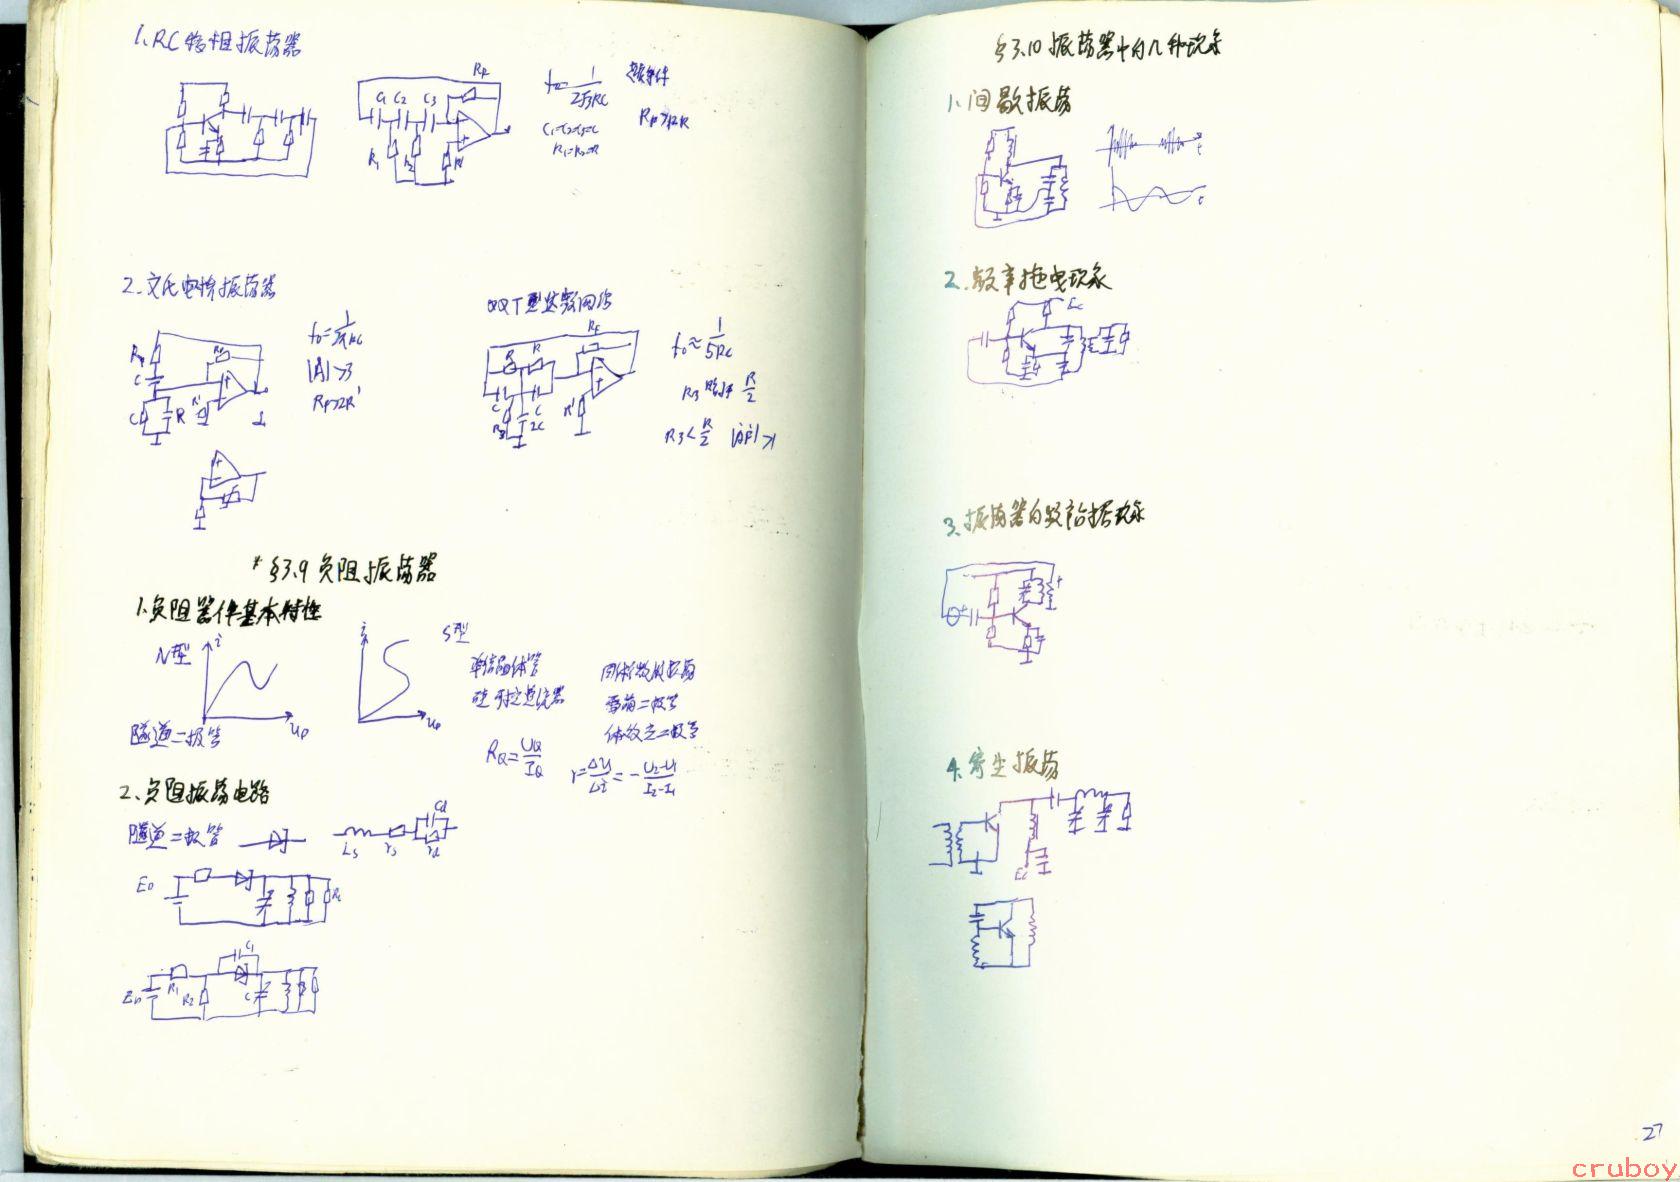 1.RC移相振荡器
RF
C1 C2 C3
R1 R2 R'
C1=C2=C3=C
R1=R2=R
起振条件
2.文氏电桥振荡器
f0=1/2πRC
|A|>3
RF>2R'
双T型选频网络
RF
R R
C C
R3 2C R'
f0≈1/5RC
R3略小于R/2
R3<R/2 |AF|>1
*§3.9负阻振荡器
1.负阻器件基本特性
N型 i
uD
隧道二极管
i S型
uD
单结晶体管
硅可控整流器
雪崩二极管
体效应二极管
RQ=UQ/IQ
r=ΔU/Δi=-U2-U1/I2-I1
2.负阻振荡电路
隧道二极管
Ls rs Cd rd
ED
RL
ED R1 R2 C1 C
§3.10振荡器中的几种现象
1.间歇振荡
t
t
2.频率拖曳现象
Ec
3.振荡器的频率占据现象
4.寄生振荡
Ec
27
cruboy